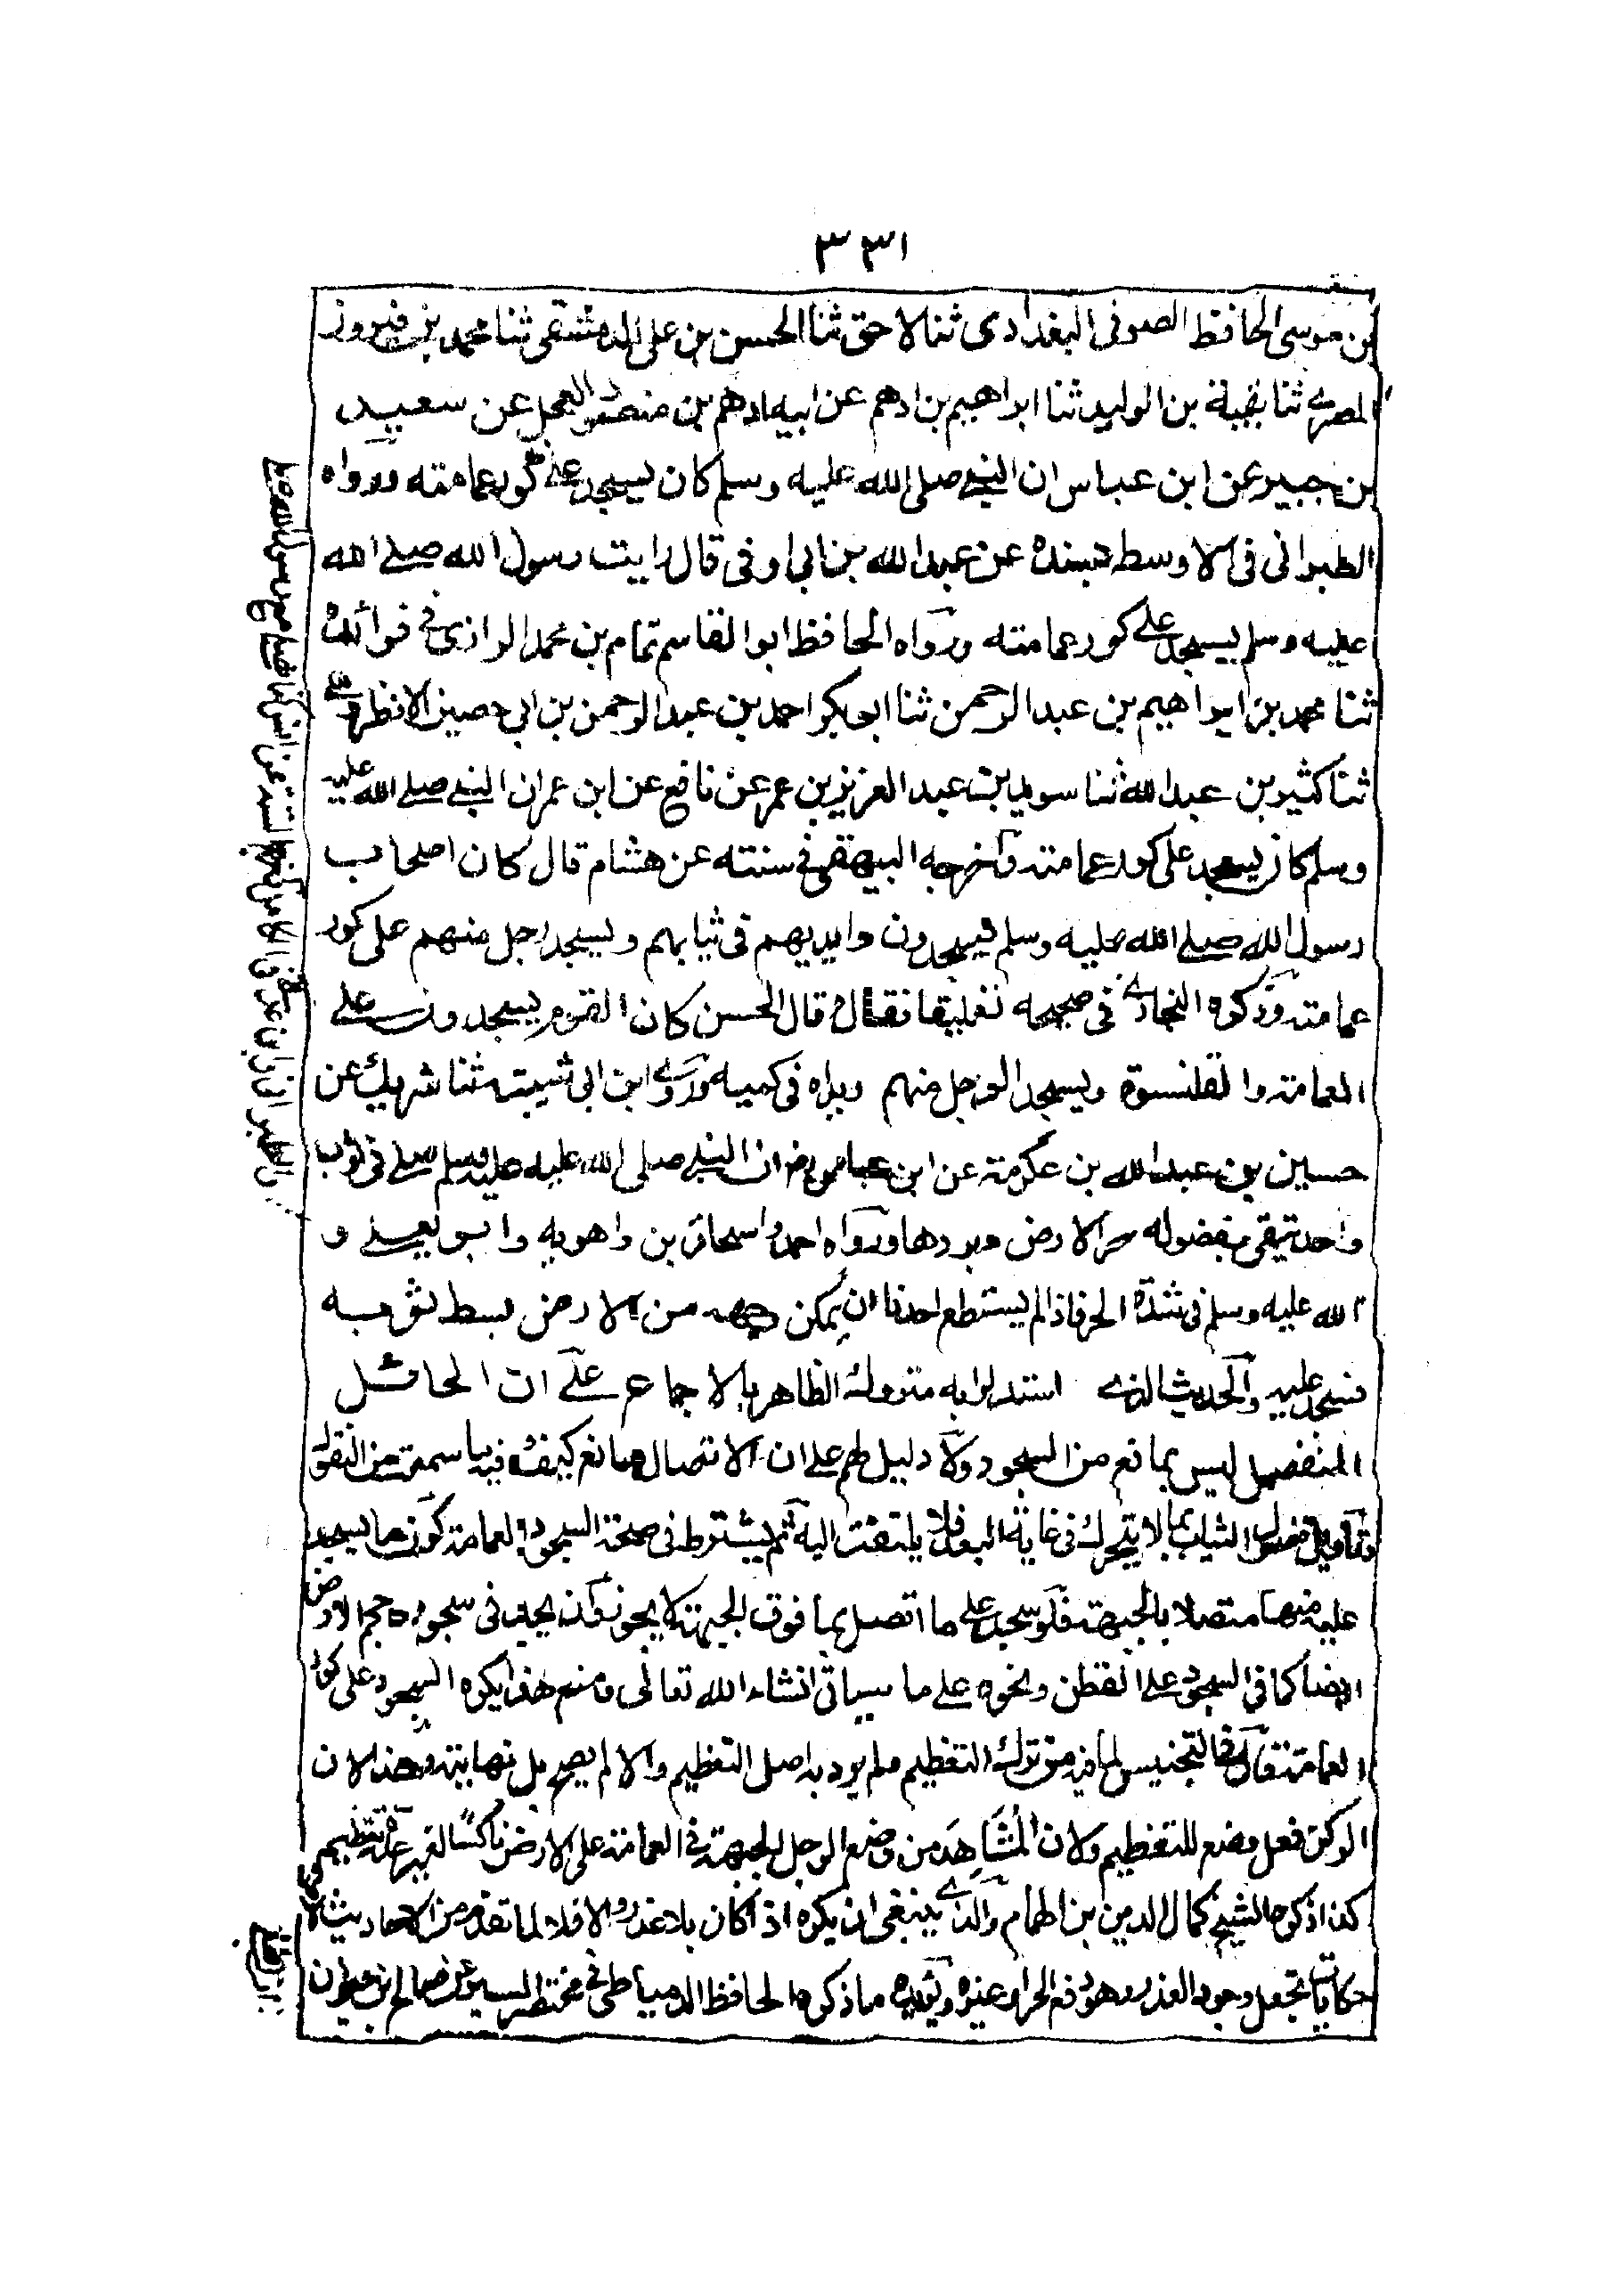 ٣٣١
بن موسى الحافظ الصوفى البغدادى ثنا لاحق ثنا الحسن بن على الدمشقى ثنا محمد بن فيروز
المصرى ثنا بقية بن الوليد ثنا ابراهيم بن ادهم عن ابيه ادهم بن منصور العجلى عن سعيد
بن جبير عن ابن عباس ان النبى صلى الله عليه وسلم كان يسجد على كور عمامته ورواه
الطبرانى فى الاوسط بسنده عن عبد الله بن ابى اوفى قال رايت رسول الله صلى الله
عليه وسلم يسجد على كور عمامته ورواه الحافظ ابو القاسم تمام بن محمد الرازى فى فوائده
ثنا محمد بن ابراهيم بن عبد الرحمن ثنا ابو بكر احمد بن عبد الرحمن بن ابى حصين الانطرطوسى
ثنا كثير بن عبد الله ثنا سويد بن عبد العزيز بن عمر عن نافع عن ابن عمر ان النبى صلى الله عليه
وسلم كان يسجد على كور عمامته واخرجه البيهقى فى سننه عن هشام قال كان اصحاب
رسول الله صلى الله عليه وسلم يسجدون وايديهم فى ثيابهم ويسجد رجل منهم على كور
عمامته وذكره البخارى فى صحيحه تعليقا فقال وقال الحسن كان القوم يسجدون على
العمامة والقلنسوة ويسجد الرجل منهم ويداه فى كميه وروى ابن ابى شيبة ثنا شريك عن
حسين بن عبد الله بن عكرمة عن ابن عباس رض ان النبى صلى الله عليه عليه وسلم صلى فى ثوب
واحد يتقى بفضوله حر الارض وبردها ورواه احمد واسحاق بن راهويه وابو يعلى و
الله عليه وسلم فى شدة الحر فاذا لم يستطع احدنا ان يمكن جبهته من الارض بسط ثوبه
فسجد عليه والحديث الذى استدلوا به متروك الظاهر بالاجماع على ان الحائل
المنفصل ليس بمانع من السجود ولا دليل لهم على ان الاتصال مانع كيف وفيما سمعت من النقول
وتأويل فضول الثياب بما لا يتحرك فى غاية البعد فلا يلتفت اليه ثم يشترط فى صحة السجود على العمامة كون ما يسجد
عليه منها متصلا بالجبهة فلو سجد على ما اتصل بما فوق الجبهة لا يجوز وان يجد فى سجوده حجم الارض
ايضا كما فى السجود على القطن ونحوه على ما سيأتى انشاء الله تعالى ومع هذا يكره السجود على كور
العمامة قال فى التجنيس لما فيه من ترك التعظيم ولم يرد به اصل التعظيم والا لم يصح بل نهايته وهذا لان
الركن فعل وضع للتعظيم ولان المُشَاهَد من وضع الرجل الجبهة فى العمامة على الارض ناكسًا لغيره عدّه تعظيم
كذا ذكره الشيخ كمال الدين بن الهمام والذى ينبغى ان يكره اذا كان بلا عذر والا فلا لما تقدم من الاحاديث
حكايات تحمل وجود العذر وهو دفع الحر او غيره ويؤيده ما ذكره الحافظ الدمياطى فى مختصر السير عن صالح بن حيوان